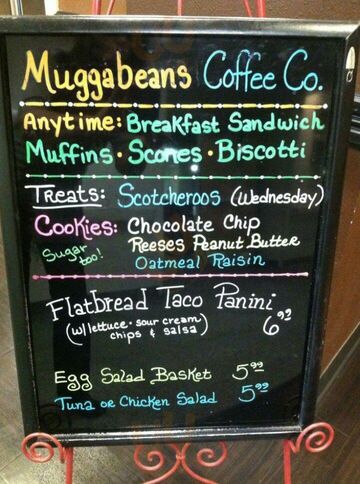 Muggabeans Coffee Co.
Anytime: Breakfast Sandwich
Muffins · Scones · Biscotti
Treats: Scotcheroos (Wednesday)
Cookies: Chocolate Chip
Reeses Peanut Butter
Sugar too!
Oatmeal Raisin
Flatbread Taco Panini
(w/lettuce · sour cream
chips & salsa)
6.99
Egg Salad Basket 5.99
Tuna or Chicken Salad 5.99